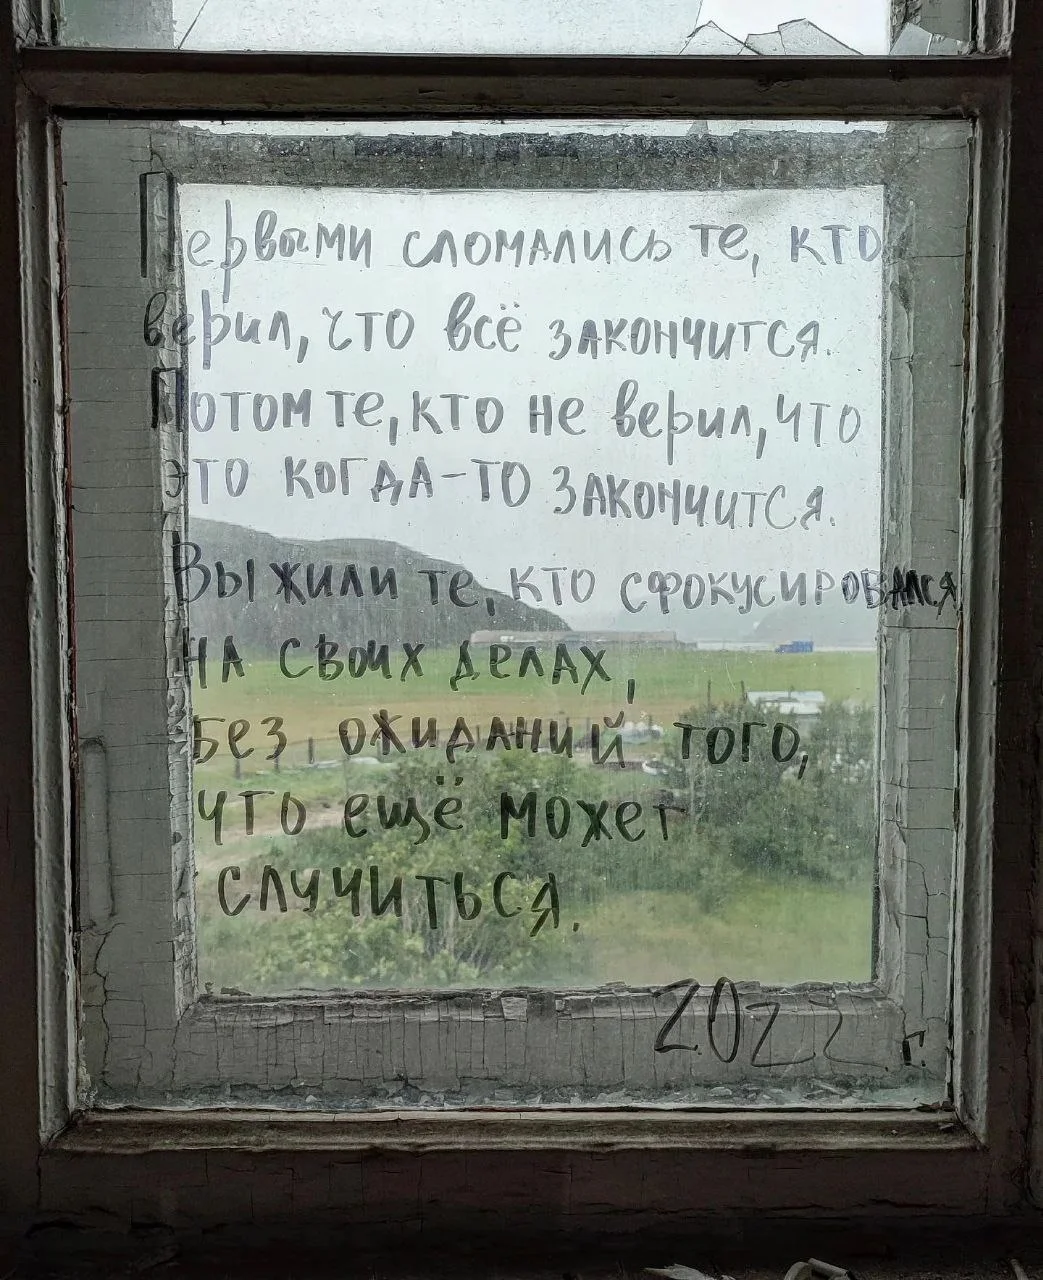 Первыми сломались те, кто
верил, что всё закончится.
Потом те, кто не верил, что
это когда-то закончится.
Выжили те, кто сфокусировался
на своих делах,
без ожиданий того,
что ещё может
случиться.
2022 г.